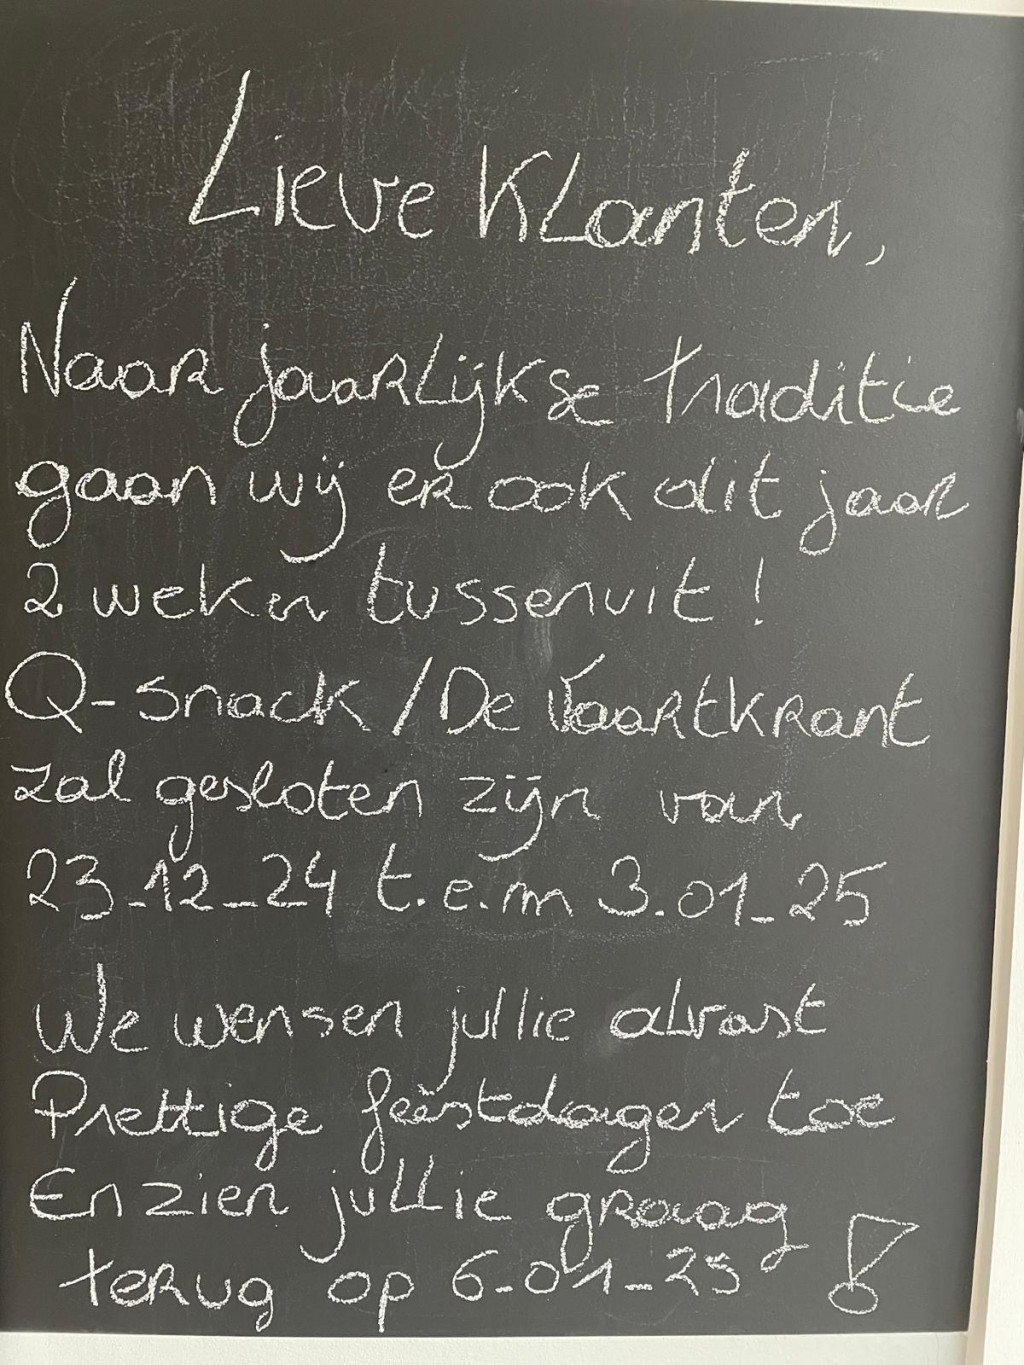 Lieve Klanten,
Naar jaarlijkse traditie
gaan wij er ook dit jaar
2 weken tussenuit!
Q-snack / De Vaartkrant
zal gesloten zijn van
23-12-24 t.e.m 3.01-25
We wensen jullie alvast
Prettige feestdagen toe
En zien jullie graag
terug op 6-01-25 !